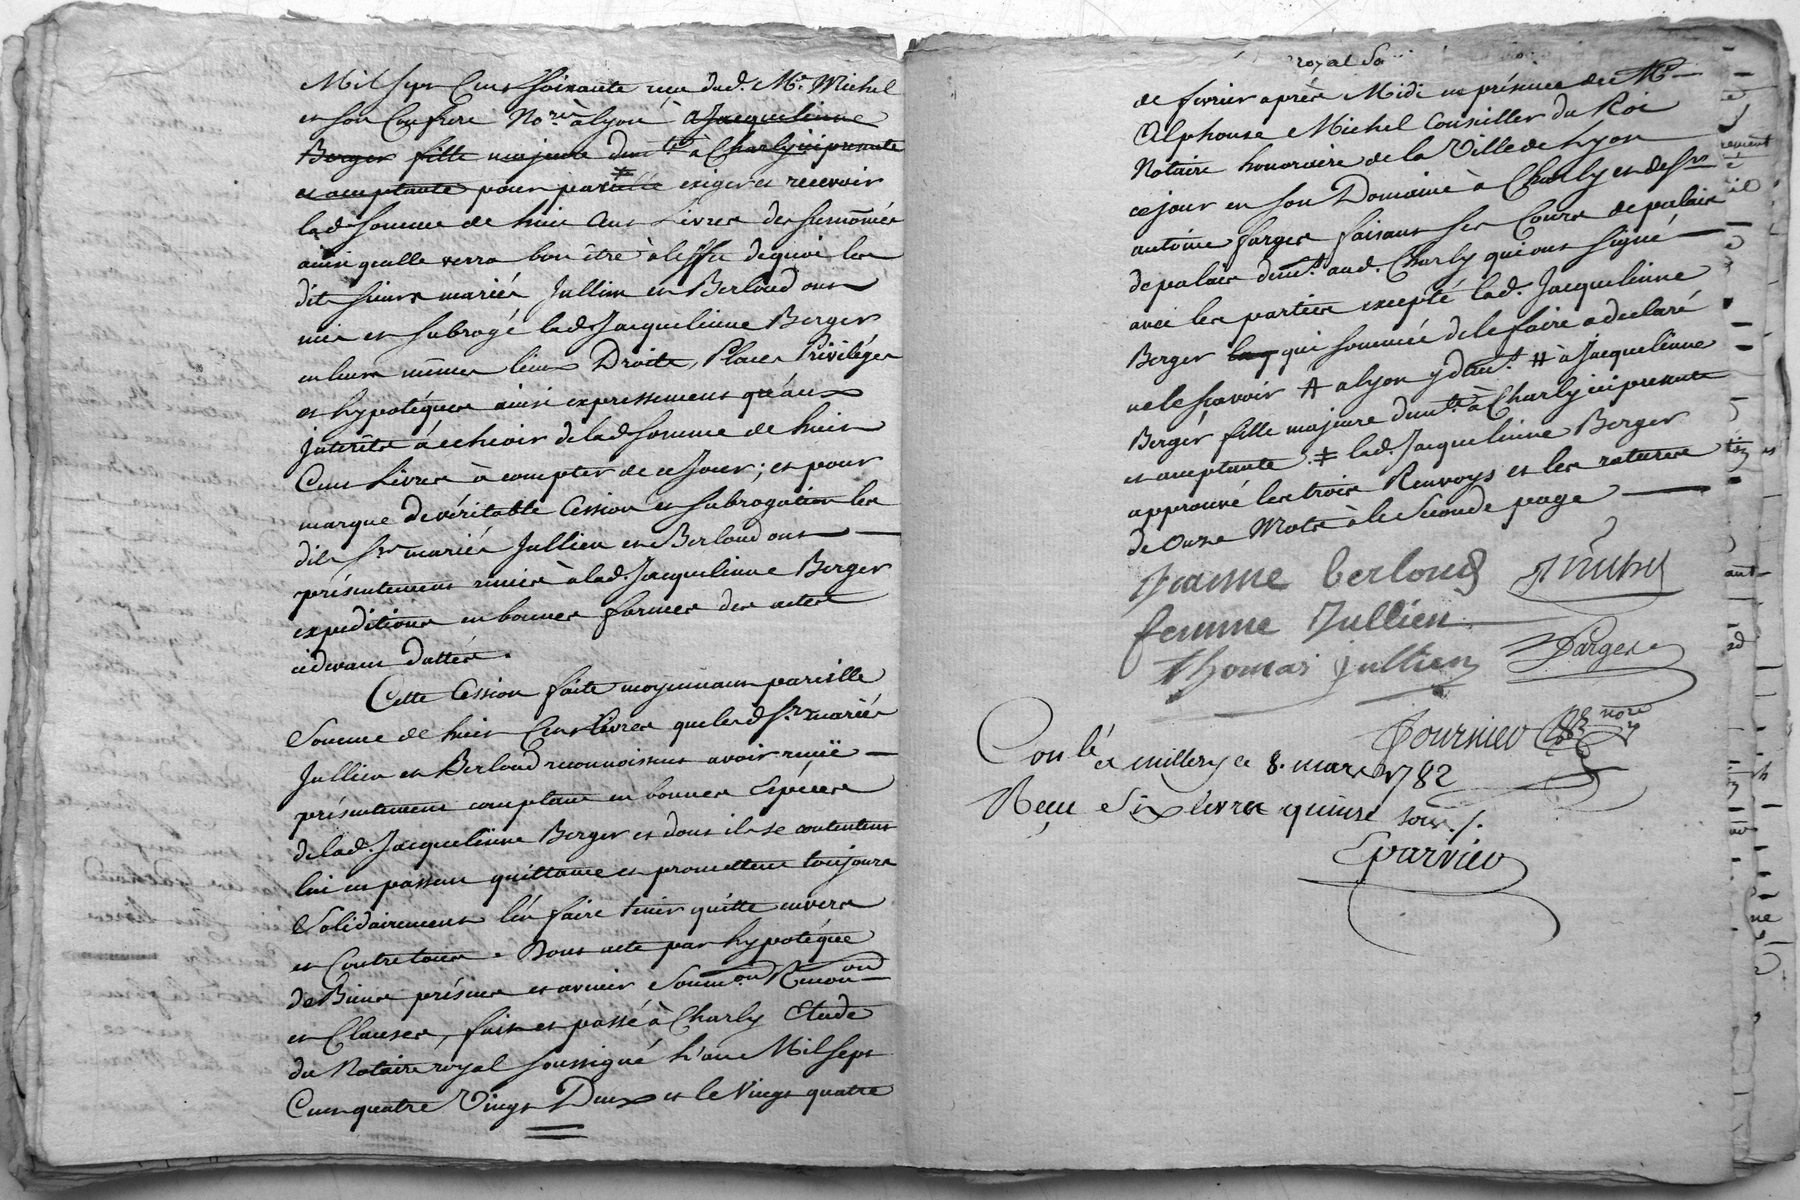 Mil Sept Cens Soixante reçu dud. Me. Michel
et son Confrere Nore. à lyon à Jacquelinne
Berger fille majeure demte. à Charly ici presente
et acceptante pour par elle exiger et recevoir
lad. Somme de huit Cens Livres des Susnommés
ainsi qu'elle verra bon être à l'effet de quoi les
dits Sieurs mariés Jullien et Berloud ont
mis et Subrogé lad. Jacquelinne Berger
en leurs mêmes lieux Droits, Places Privileges
et hypotéques ainsi expressement qu'aux
Interêts à échéoir de lad. Somme de huit
Cens Livres à compter de ce Jour; et pour
marque de véritable Cession et Subrogation les
dits Srs. mariés Jullien et Berloud ont
présentement remis à lad. Jacquelinne Berger
expeditions en bonnes formes des actes
cidevant dattés.
Cette Cession faite moyennant pareille
Somme de huit Cens Livres que lesd. Srs. mariés
Jullien et Berloud reconnoissent avoir reçüe
présentement comptant en bonnes Espéces
de lad. Jacquelinne Berger et dont ils se contentent
lui en passent quittance et promettent toujours
Solidairement l'en faire tenir quitte envers
et Contre tous. Dont acte par hypotéque
de Biens présens et avenir Soumon. Renon.
et Clauses, fait et passé à Charly Etude
du Notaire royal soussigné L'an Mil Sept
Cens quatre Vingt Deux et le Vingt quatre
royal So
de fevrier après Midi en présence de Me.
Alphonse Michel Conseiller du Roi
Notaire honoraire de la Ville de Lyon
ce jour en son Domaine à Charly et de Sr.
antoine farges faisant Ses Cours de palais
de palais demt. aud. Charly qui ont signé
avec les parties excepté lad. Jacquelinne
Berger qui sommée de le faire a declaré
ne le Sçavoir A a lyon y demt. # à Jacquelinne
Berger fille majeure demte. à Charly ici presente
et acceptante. ‡ lad. Jacquelinne Berger
approuvé les trois Renvoys et les ratures
de Onze Mots à la Seconde page
Jeanne berloud
Michel
femme Jullien
Thomas Jullien
Farges
Fournier nore
Conlé à millery ce 8. mars 1782
Reçu Six livres quinze sous ./.
Eparvier